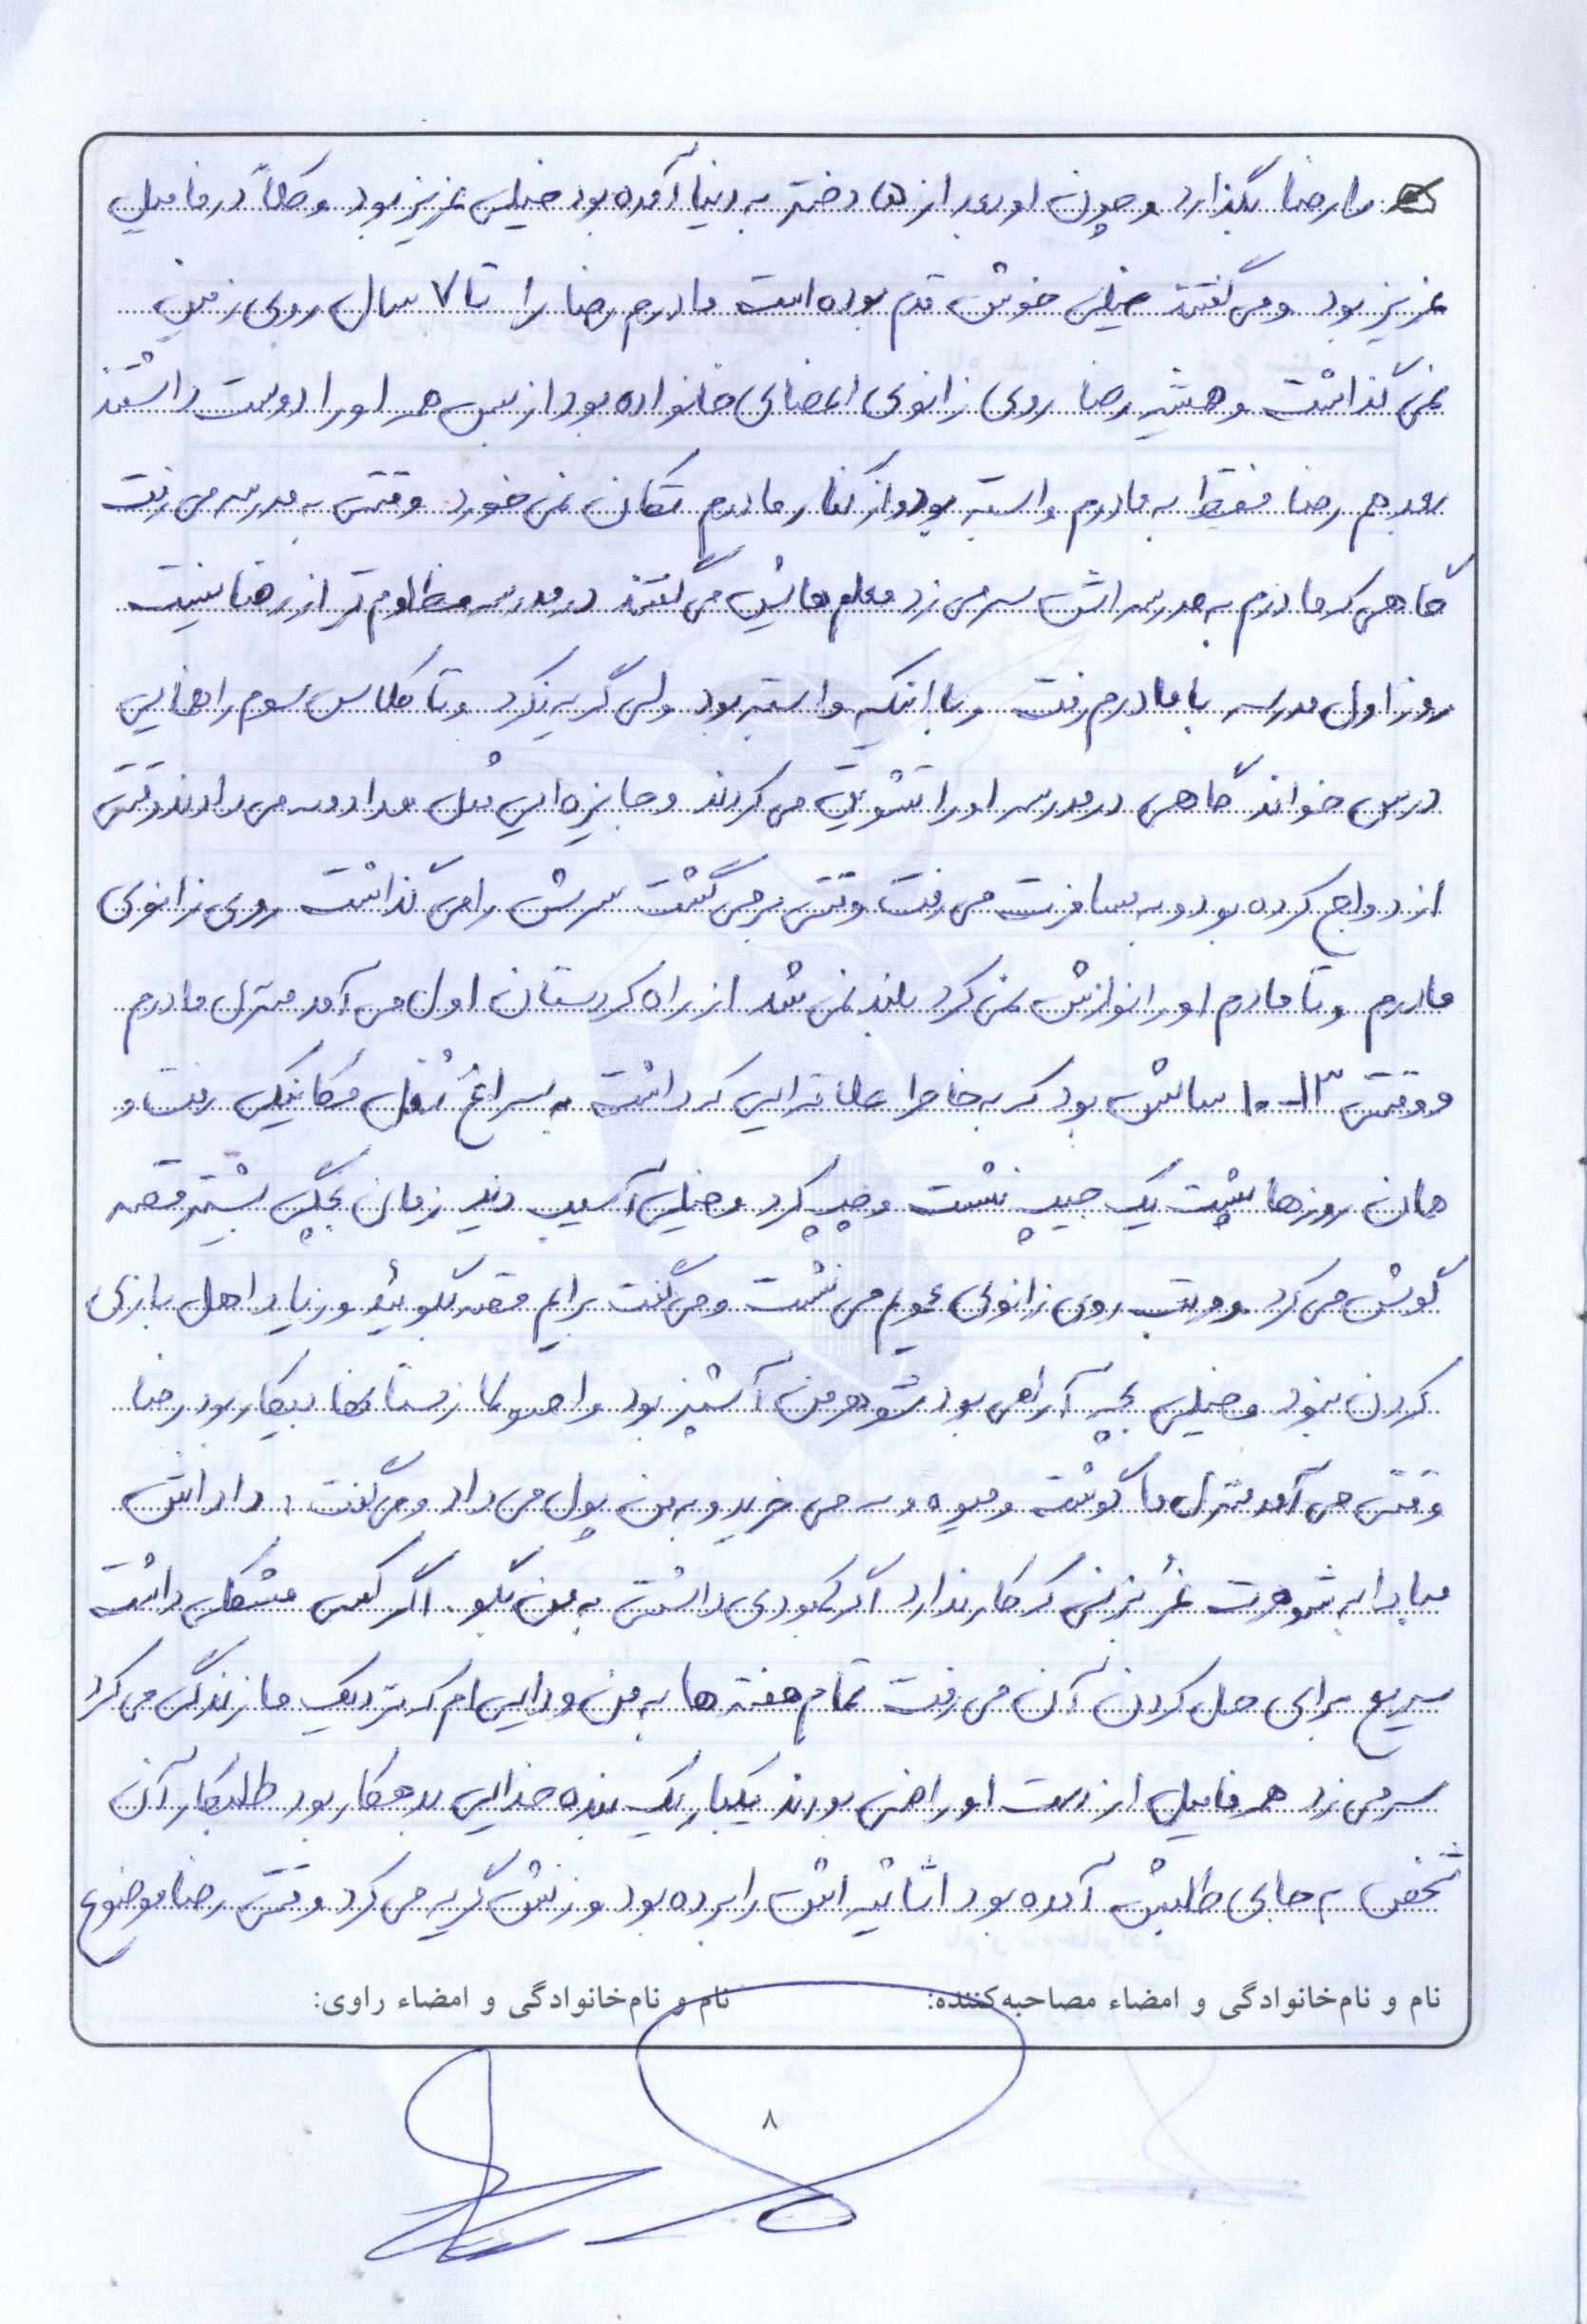 را رضا بگذارد و چون او بعد از ها دختر به دنیا آمده بود خیلی عزیز بود و کلاً در فامیل
عزیز بود و می گفتند خیلی خوش قدم بوده است مادرم رضا را تا ۷ سال روی زمین
نمی گذاشت و همیشه رضا روی زانوی اعضای خانواده بود از بس همه او را دوست داشتند
بعد هم رضا فقط به مادرم وابسته بود و از کنار مادرم تکان نمی خورد وقتی به مدرسه می رفت
گاهی که مادرم به مدرسه اش سر می زد معلم هایش می گفتند در مدرسه مظلوم تر از رضا نیست
روز اول مدرسه با مادرم رفت و با اینکه وابسته بود ولی گریه نکرد و تا کلاس سوم راهنمایی
درس خواند گاهی در مدرسه او را تشویق می کردند و جایزه ایی مثل مداد و می دادند وقتی
ازدواج کرده بود و به مسافرت می رفت وقتی برمی گشت سرش را می گذاشت روی زانوی
مادرم و تا مادرم او را نوازش نمی کرد بلند نمی شد از راه کردستان اول می آمد منزل مادرم
و وقتی ۱۳-۱۰ سالش بود که به خاطر علاقه ایی که داشت به سراغ شغل مکانیکی رفت و
همان روزها پشت یک جیپ نشست و چپ کرد و خیلی آسیب دید زمان بچگی بیشتر قصه
گوش می کرد و روی زانوی عمویم می نشست و می گفت برایم قصه بگوئید و زیاد اهل بازی
کردن نبود و خیلی بچه آرامی بود شوهر من آشپز بود و اصولا زمستانها بیکار بود رضا
وقتی می آمد منزل ما گوشت و میوه و می خرید و به من پول می داد و می گفت: داداش
مبادا به شوهرت غُر بزنی که کار ندارد اگر کمبودی داشتی به من بگو. اگر کسی مشکلی داشت
سریع برای حل کردن آن می رفت تمام هفته ها به من و دایی ام که نزدیک ما زندگی می کرد
سر می زد همه فامیل از دست او راضی بودند یکبار یک بنده خدایی بدهکار بود طلبکار آن
شخص به جای طلبش آمده بود اثاثیه اش را برده بود و زنش گریه می کرد وقتی رضا موضوع
نام و نام‌خانوادگی و امضاء مصاحبه‌کننده: نام و نام‌خانوادگی و امضاء راوی:
۸